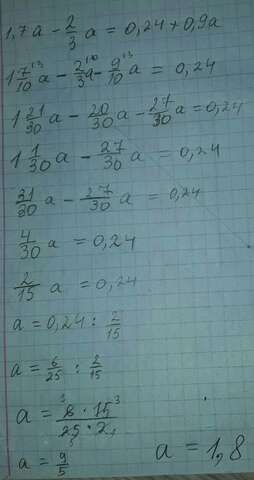 1,7a - 2/3 a = 0,24 + 0,9a
1 7/10 ¹³ a - 2/3 ¹¹⁰ a - 9/10 ¹³ a = 0,24
1 21/30 a - 20/30 a - 27/30 a = 0,24
1 1/30 a - 27/30 a = 0,24
31/30 a - 27/30 a = 0,24
4/30 a = 0,24
2/15 a = 0,24
a = 0,24 : 2/15
a = 6/25 : 2/15
a = ³6 · 15³ / ₅25 · 2₁
a = 9/5 a = 1,8